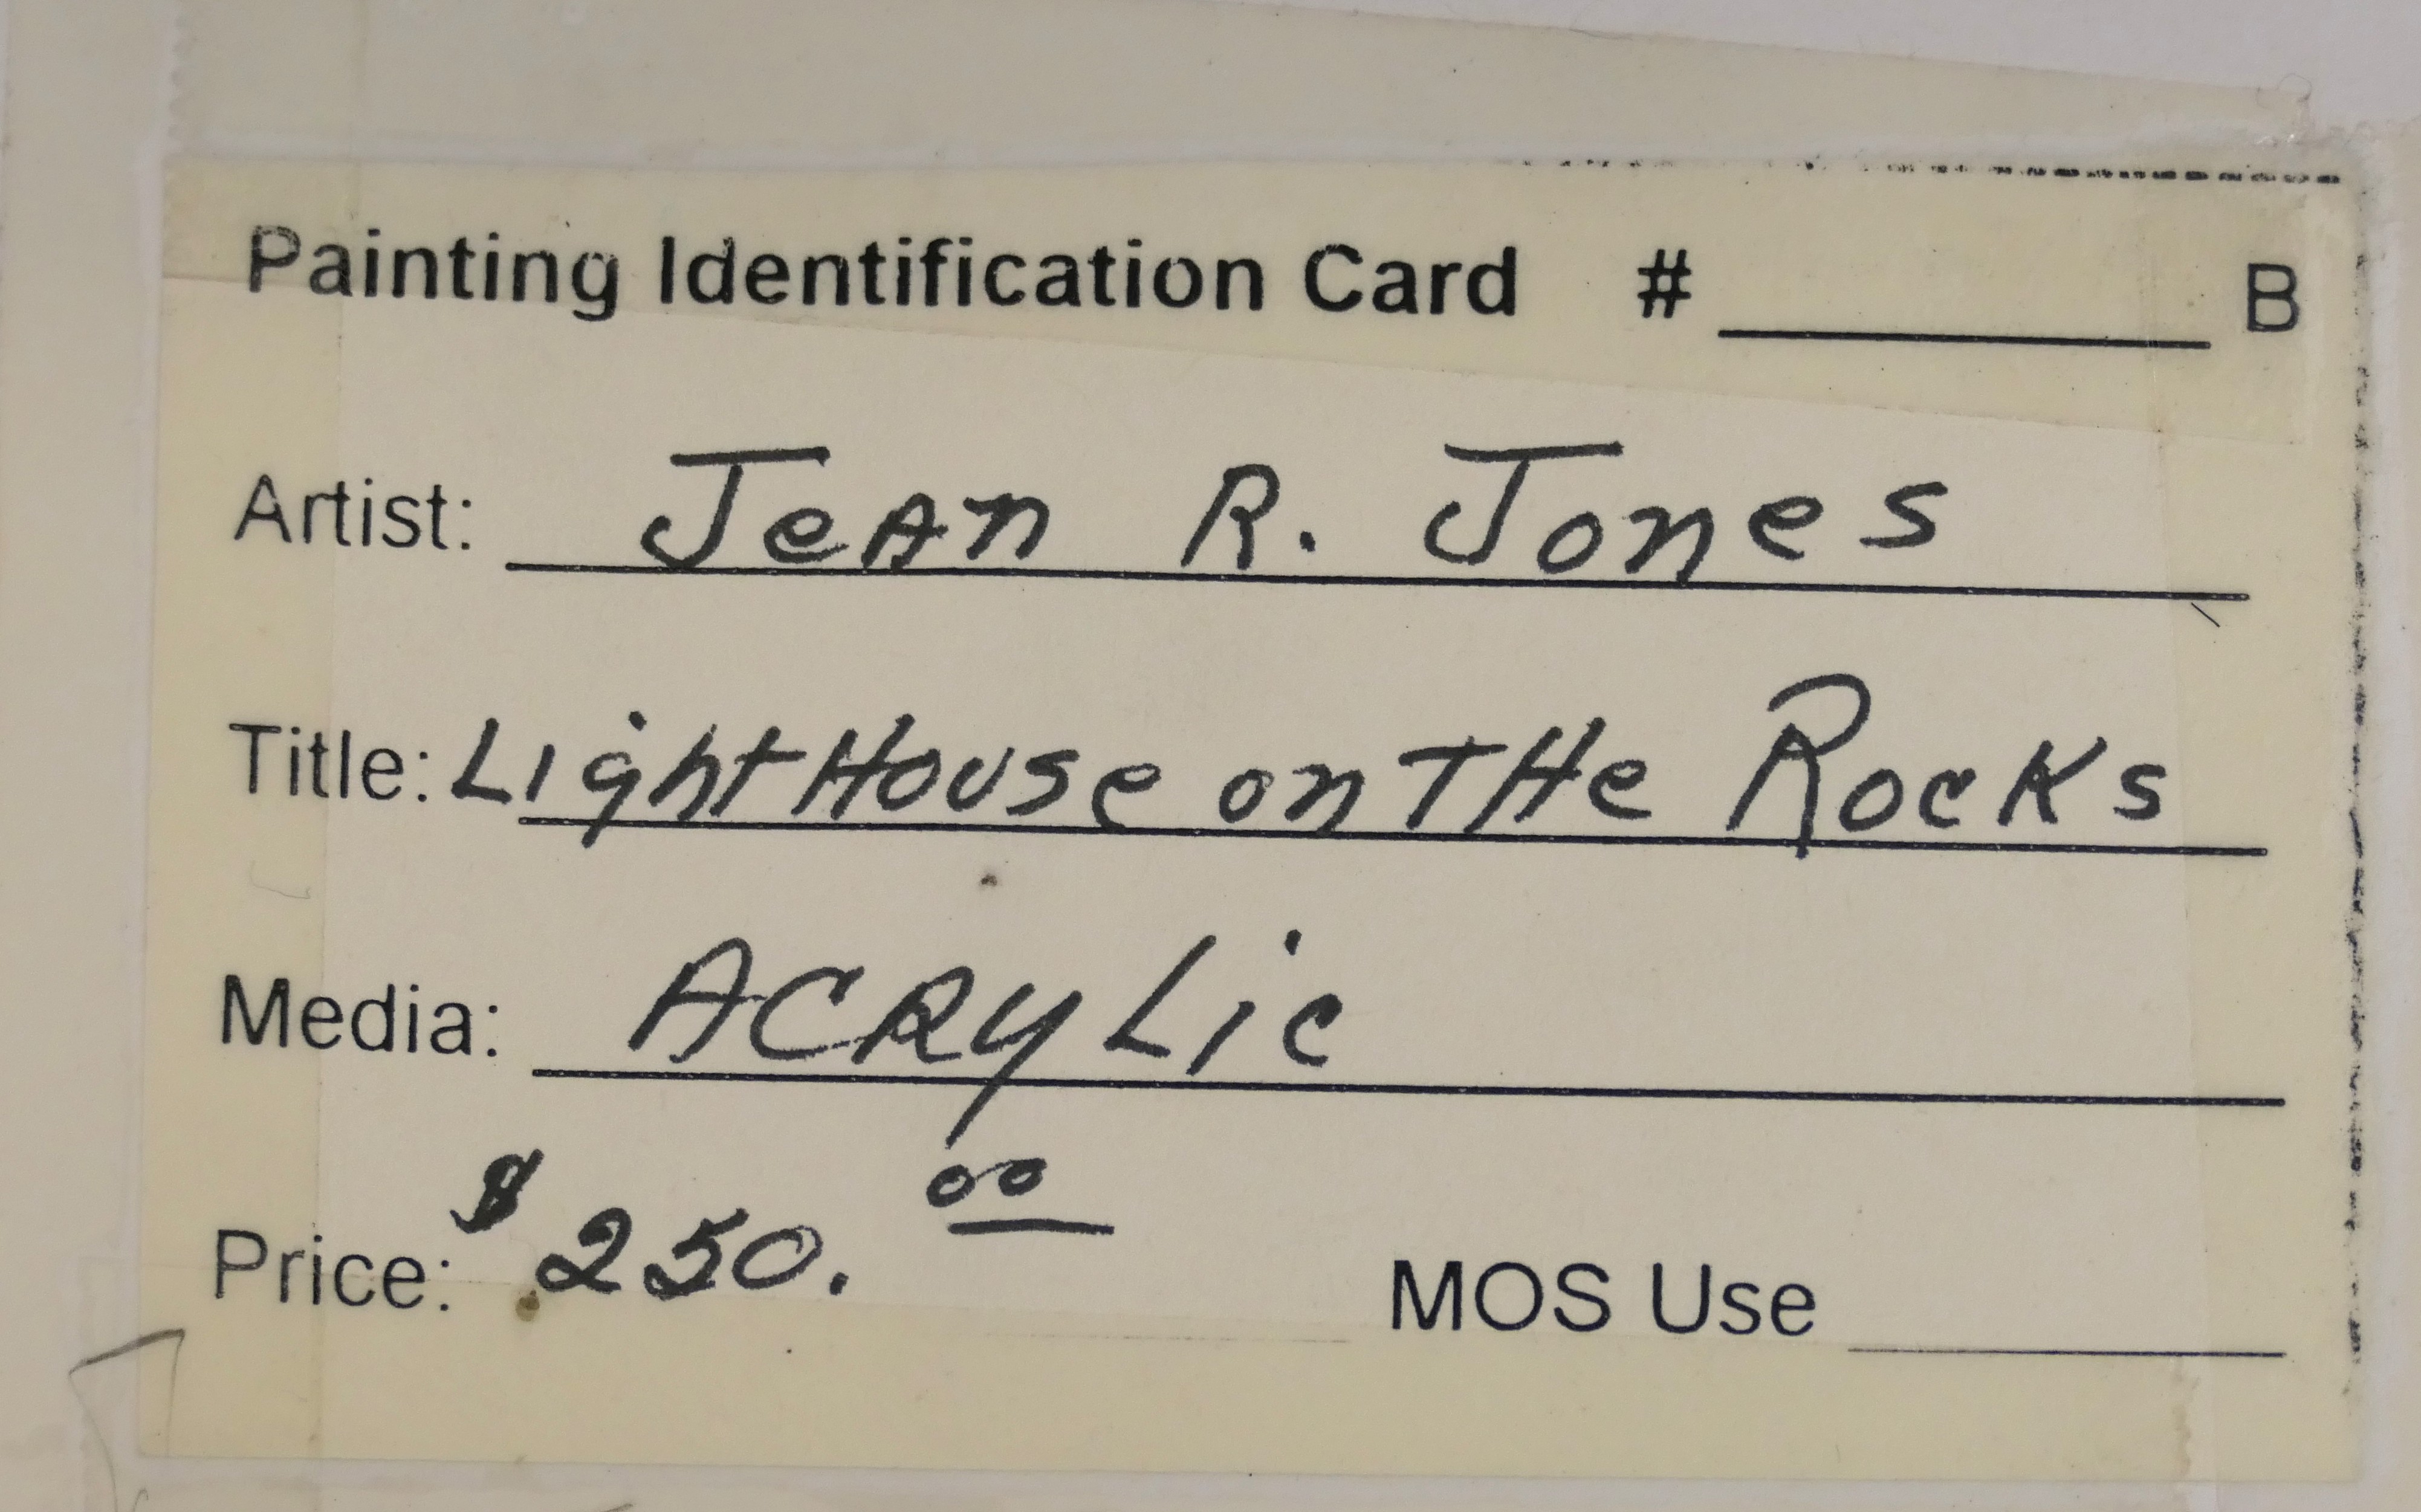 Painting Identification Card # ______ B
Artist: Jean R. Jones
Title: LightHouse on THe Rocks
Media: ACRyLic
Price: $250.00 MOS Use ______